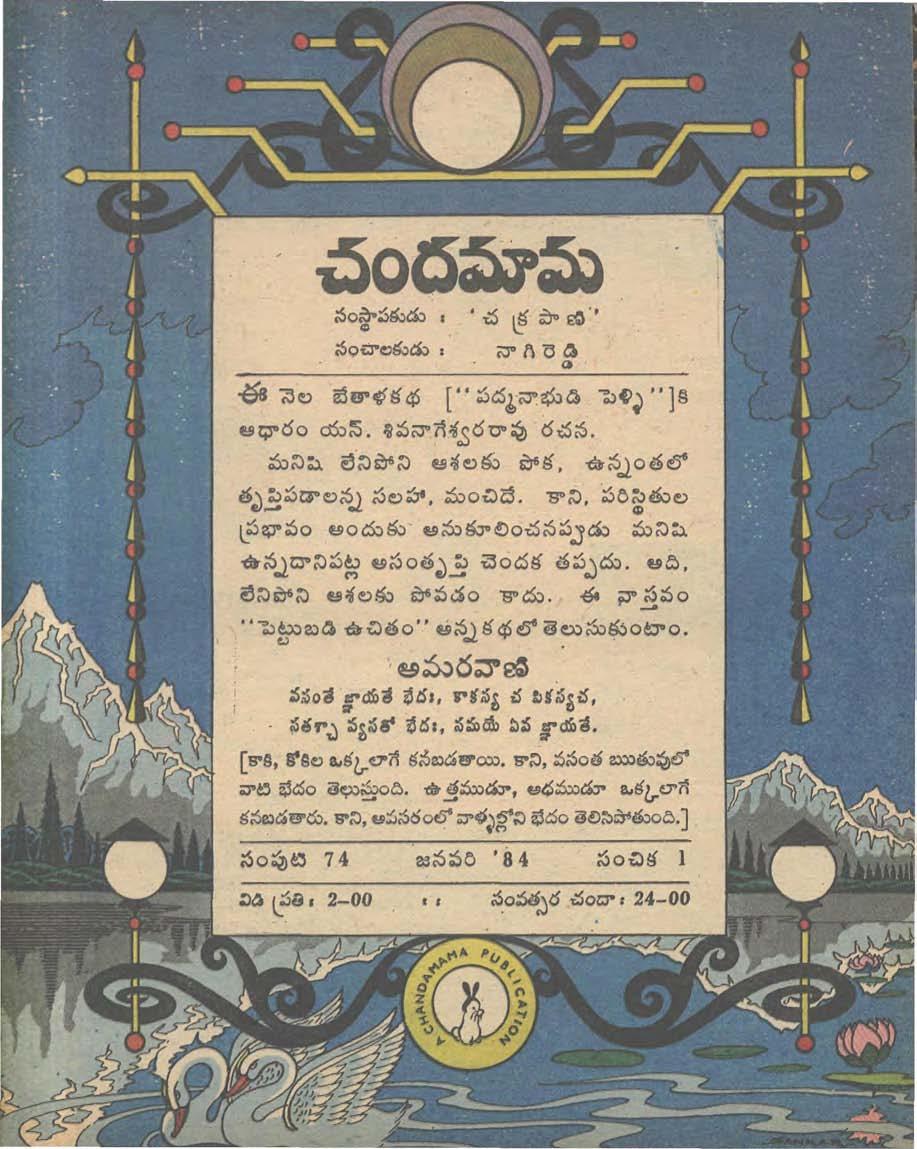 చందమామ
సంస్థాపకుడు : 'చక్రపాణి'
సంచాలకుడు : నాగిరెడ్డి
ఈ నెల బేతాళకథ [''పద్మనాభుడి పెళ్ళి'']కి
ఆధారం యన్. శివనాగేశ్వరరావు రచన.
మనిషి లేనిపోని ఆశలకు పోక, ఉన్నంతలో
తృప్తిపడాలన్న సలహా, మంచిదే. కాని, పరిస్థితుల
ప్రభావం అందుకు అనుకూలించనప్పుడు మనిషి
ఉన్నదానిపట్ల అసంతృప్తి చెందక తప్పదు. అది,
లేనిపోని ఆశలకు పోవడం కాదు. ఈ వాస్తవం
''పెట్టుబడి ఉచితం'' అన్న కథలో తెలుసుకుంటాం.
అమరవాణి
వసంతే జ్ఞాయతే భేదః, కాకస్య చ పికస్యచ,
సతశ్చా వ్యసతో భేదః, సమయే ఏవ జ్ఞాయతే.
[కాకి, కోకిల ఒక్కలాగే కనబడతాయి. కాని, వసంత ఋతువులో
వాటి భేదం తెలుస్తుంది. ఉత్తముడూ, అధముడూ ఒక్కలాగే
కనబడతారు. కాని, అవసరంలో వాళ్ళల్లోని భేదం తెలిసిపోతుంది.]
సంపుటి 74 జనవరి '84 సంచిక 1
విడి ప్రతి : 2–00 : : సంవత్సర చందా : 24–00
A CHANDAMAMA PUBLICATION